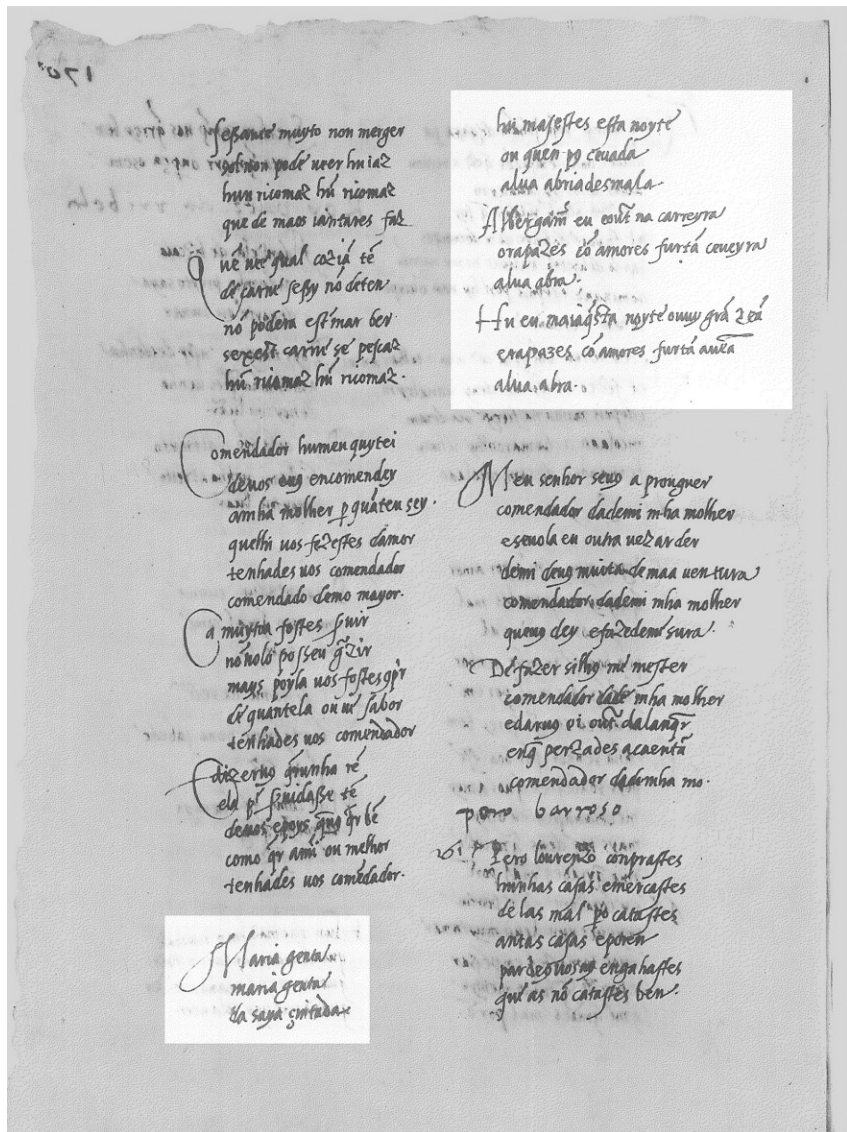 170
seẞance muyto non merger
pode ueer hu iaz
hun ricomaz hũ ricomaz
que de maos iantares faz
qual cozĩa tẽ
de carne seẞy nõ deten
nõ podera estmar ber
carne se pescaz
hũ ricomaz hũ ricomaz.
Comendador humen quytei
deuos euꝯ encomendey
amha molher ꝑ quãteu sey.
quelhi uos fezestes damor
tenhades uos comendador
comendado demo mayor.
Ca muytoa fostes ẞuir
nõ nolo posseu g̃zir
mays poyla uos fostes
quantela ou sabor
tenhades uos comendador
Edizeruꝯ q̃runha rẽ
ela
deuos epoys q̃uꝯ q̃r bẽ
como q̃r amĩ ou melhor
tenhades uos comẽdador.
Maria genta
maria genta
da saya çintada
hui masestes esta noyte
ou quen pꝯ ceuada
alua abriadesmala.
Albergam̃ eu eout̃ na carreyra
orapazes cõ amores furtã ceueyra
alua abra.
Hu eu maiaq̃sta noyte ouuy grã
erapazes cõ amores furtã auẽa
alua. abra.
Meu senhor seuꝯ a prouguer
comendador dademi mha molher
eseuola eu outra uez arder
demi deuꝯ muita de maa uentura
comendador dademi mha molher
queuꝯ dey efazedemi sura.
De fazer filhꝯ me mester
comendador dade mha molher
edaruꝯ ei out̃ dalanq̃r
enq̃ perzades acaentũ
comendador dademha mo.
pero barroso
Pero lourenzo conprastes
huũhas casas emercastes
delas mal pꝯ catastes
antas casas eporen
pardeꝯ uosuꝯ engahastes
que as nõ catastes ben.